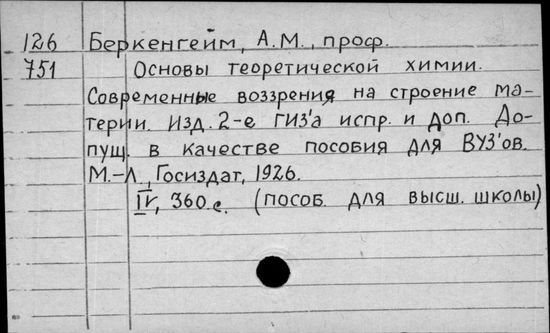 126 Беркенгейм, А.М., проф.
751 Основы теоретической химии.
Современные воззрения на строение ма-
терии. Изд. 2-е ГИЗ'а испр. и доп. До-
пущ. в качестве пособия для ВУЗ'ов.
М.-Л., Госиздат, 1926.
IV, 360 с. (пособ. для высш. школы)